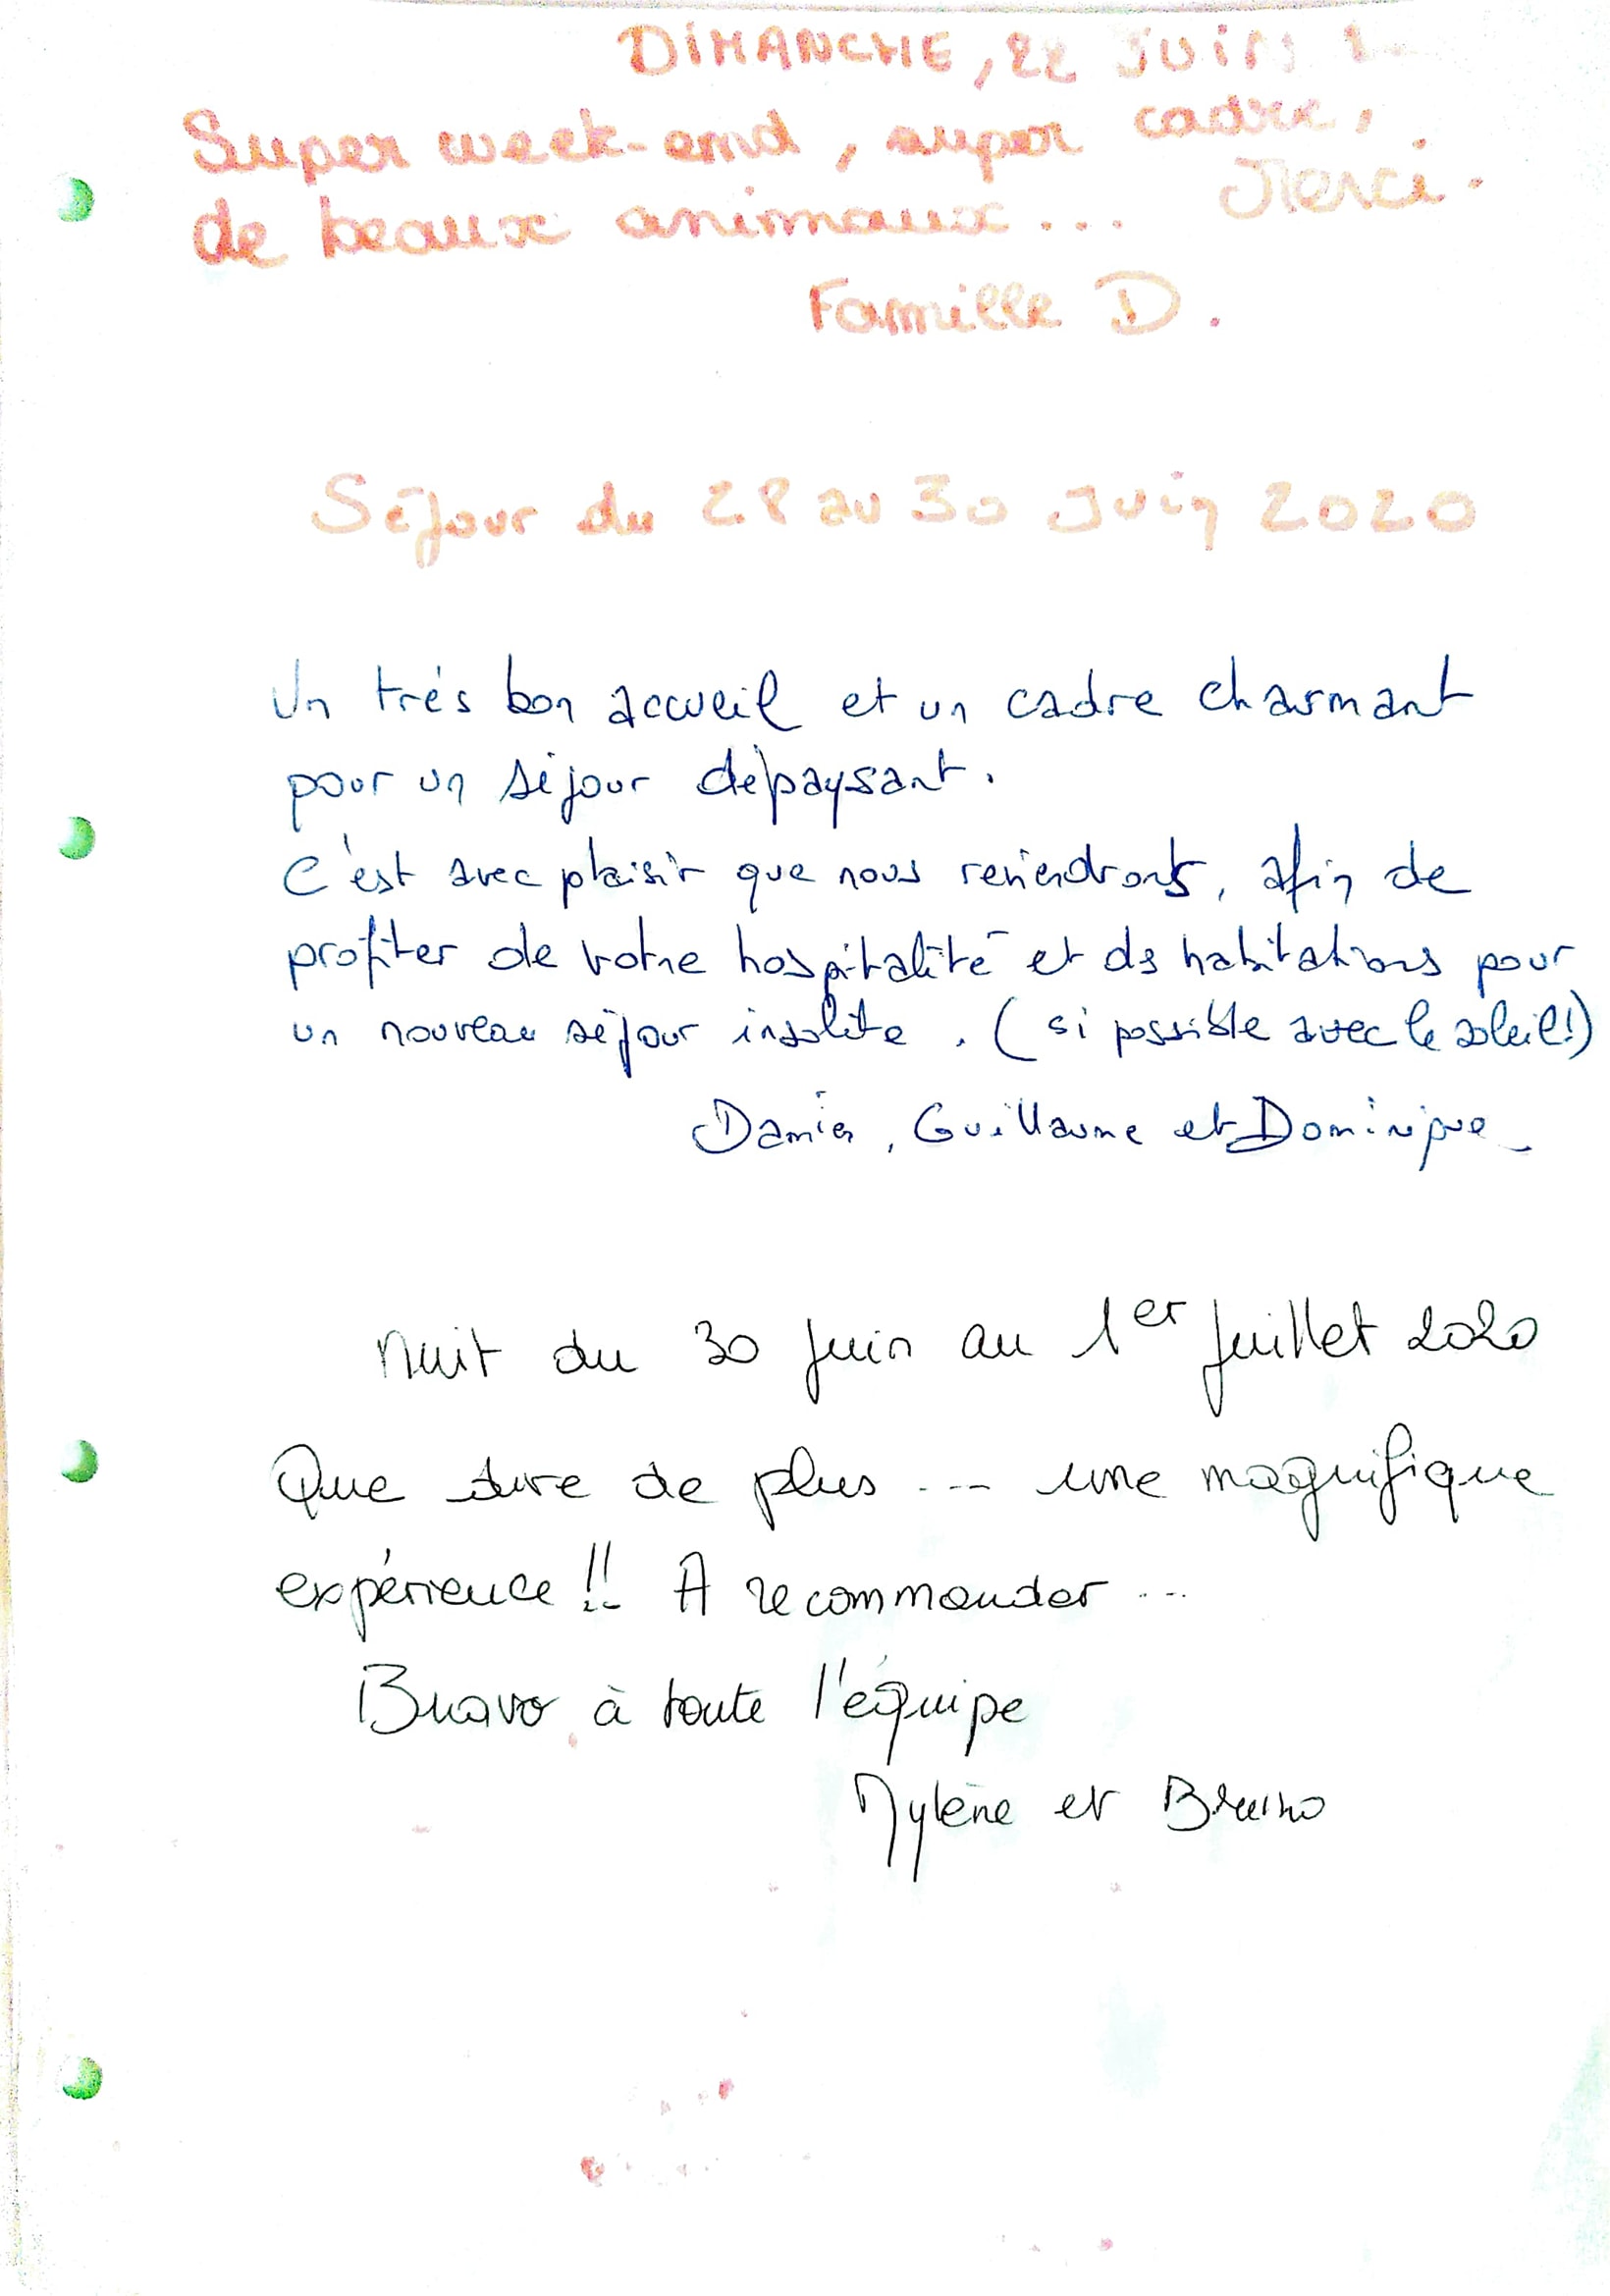 DIMANCHE, 22 JUIN
Super week-end, super cadre,
de beaux animaux... Merci.
Famille D.
Séjour du 28 au 30 Juin 2020
Un trés bon accueil et un cadre charmant
pour un séjour dépaysant.
C'est avec plaisir que nous reviendrons, afin de
profiter de votre hospitalité et ds habitations pour
un nouveau séjour insolite. (si possible avec le soleil!)
Damien, Guillaume et Dominique
Nuit du 30 juin au 1er juillet 2020
Que dire de plus ... une magnifique
expérience!! A recommander ...
Bravo à toute l'équipe
Mylène et Bruno